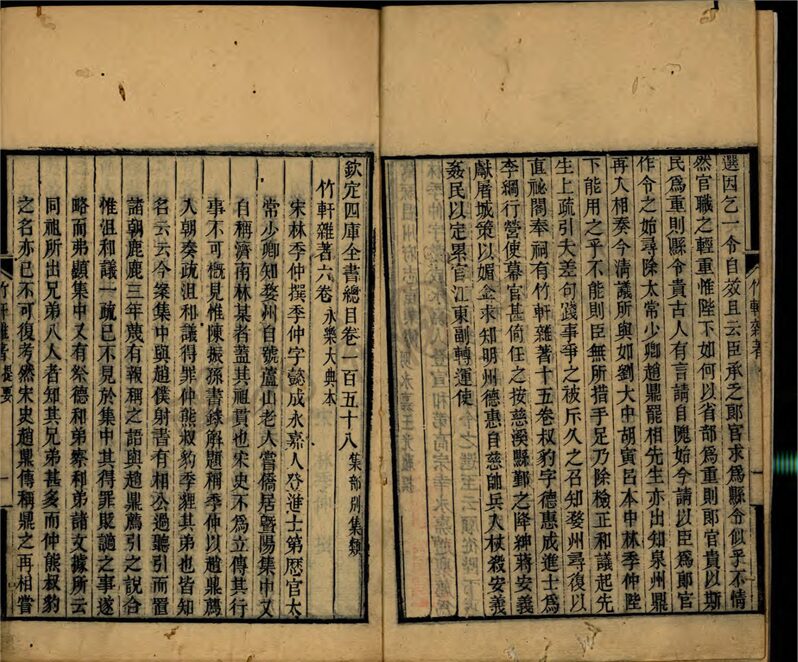 選因乞一令自效且云臣承乏郎官求爲縣令似乎不情
然官職之輕重惟陛下如何以省部爲重則郎官貴以斯
民爲重則縣令貴古人有言請自隗始今請以臣爲郎官
作令之始尋除太常少卿趙鼎罷相先生亦出知泉州鼎
再入相奏今清議所與如劉大中胡寅呂本中林季仲陛
下能用之乎不能則臣無所措手足乃除檢正和議起先
生上疏引大差句踐事爭之被斥久之召知婺州尋復以
直祕閣奉祠有竹軒雜著十五卷叔豹字德惠成進士爲
李綱行營使幕官甚倚任之按慈溪縣鄞之降紳蔣安義
獻屠城策以媚金求知明州德惠自慈師兵入杖殺安義
姦民以定累官江東副轉運使
竹軒雜著
欽定四庫全書總目卷一百五十八 集部別集類
竹軒雜著六卷 永樂大典本
宋林季仲撰季仲字懿成永嘉人登進士第歷官太
常少卿知婺州自號蘆山老人嘗僑居暨陽集中又
自稱濟南林某者蓋其祖貫也宋史不爲立傳其行
事不可槪見惟陳振孫書錄解題稱季仲以趙鼎薦
入朝奏疏沮和議得罪仲熊叔豹季貍其弟也皆知
名云云今案集中與趙僕射書有相公過聽引而置
諸朝鹿鹿三年蔑有報稱之語與趙鼎薦引之說合
惟沮和議一疏已不見於集中其得罪貶謫之事遂
略而弗顯集中又有祭德和弟察和弟諸文據所云
同祖所出兄弟八人者知其兄弟甚多而仲熊叔豹
之名亦已不可復考然宋史趙鼎傳稱鼎之再相嘗
竹軒雜著 提要 一